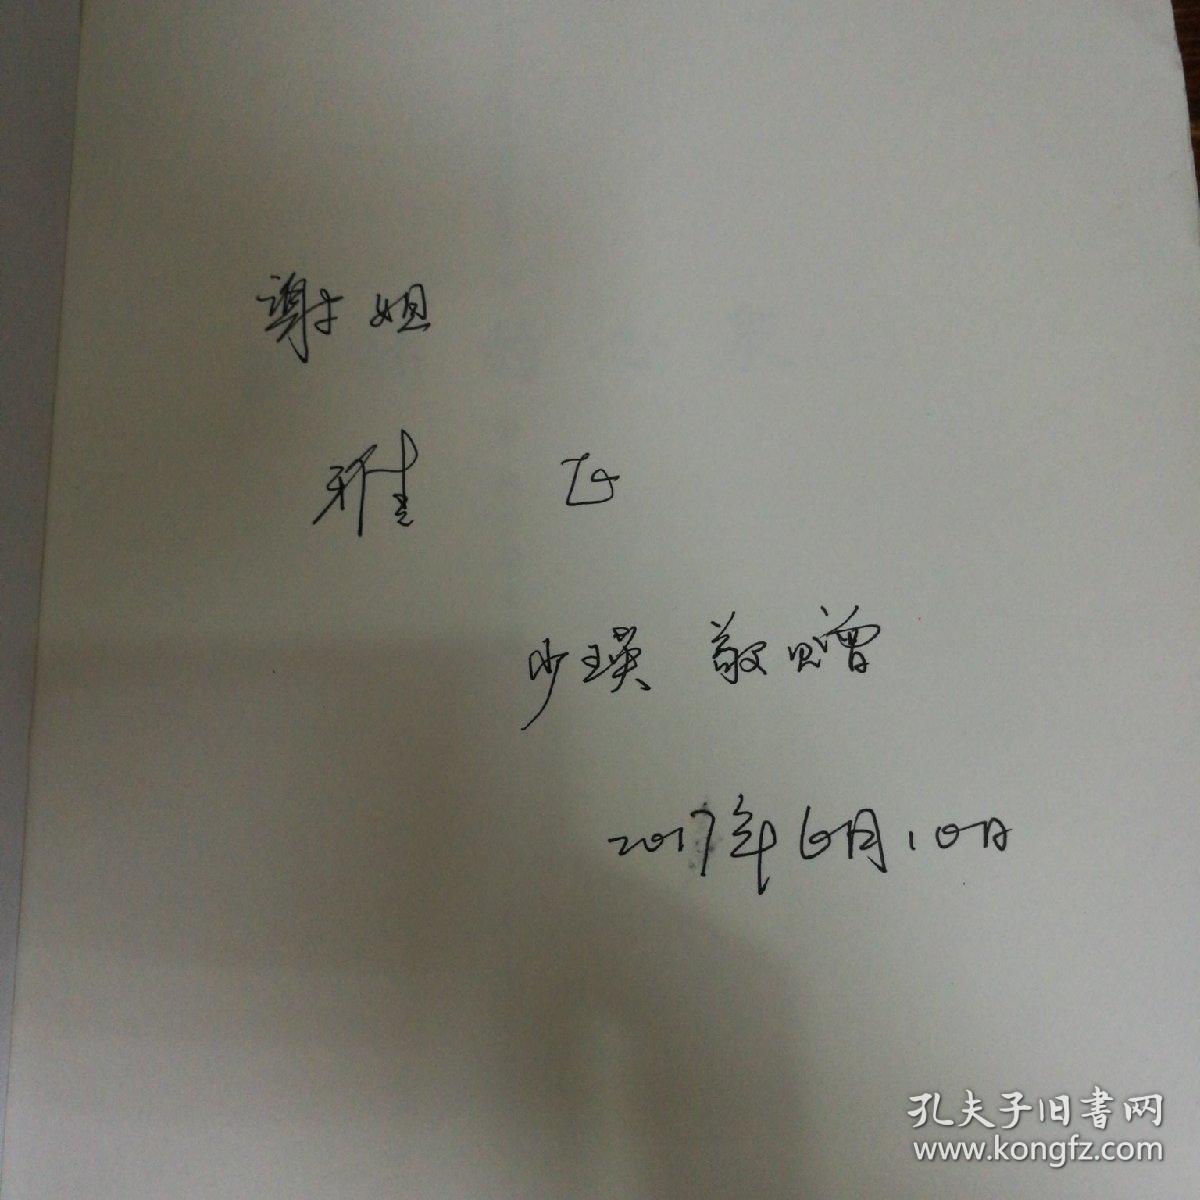 謝姐
雅正
少瑛 敬赠
2017年6月10日
孔夫子旧书网
www.kongfz.com